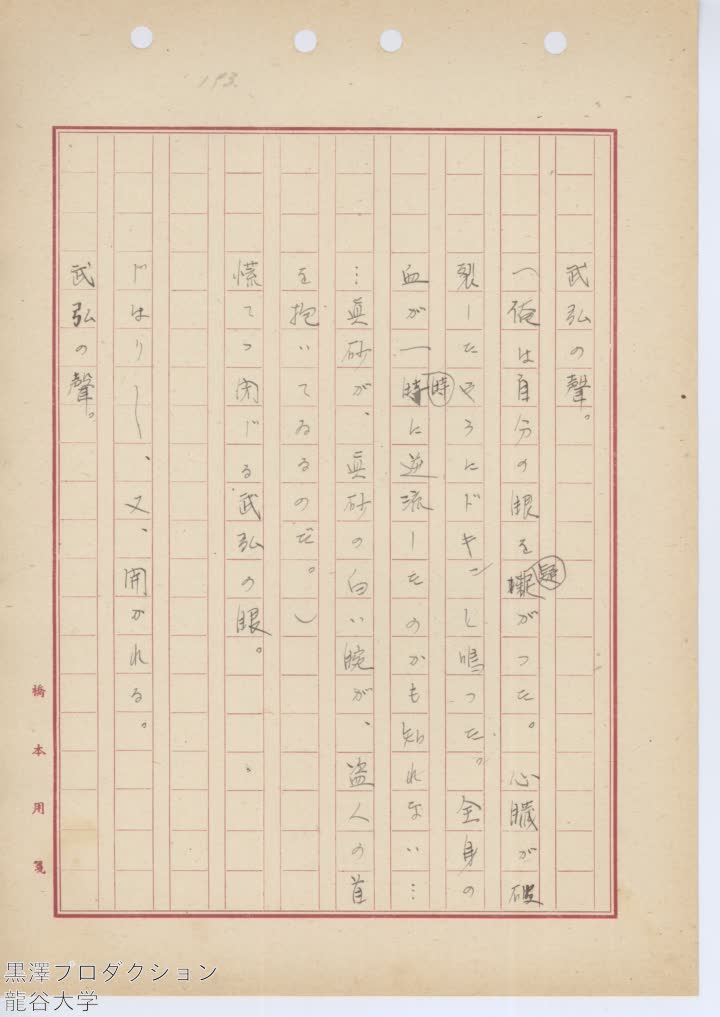 193.
武弘の聲。
（俺は自分の眼を疑がつた。心臓が破
裂したやうにドキンと鳴つた。全身の
血が一時に逆流したのかも知れない…
…眞砂が、眞砂の白い腕が、盗人の首
を抱いてゐるのだ。）
慌てゝ閉ぢる武弘の眼。
又、開かれる。
武弘の聲。
橋本用箋
黒澤プロダクション
龍谷大学